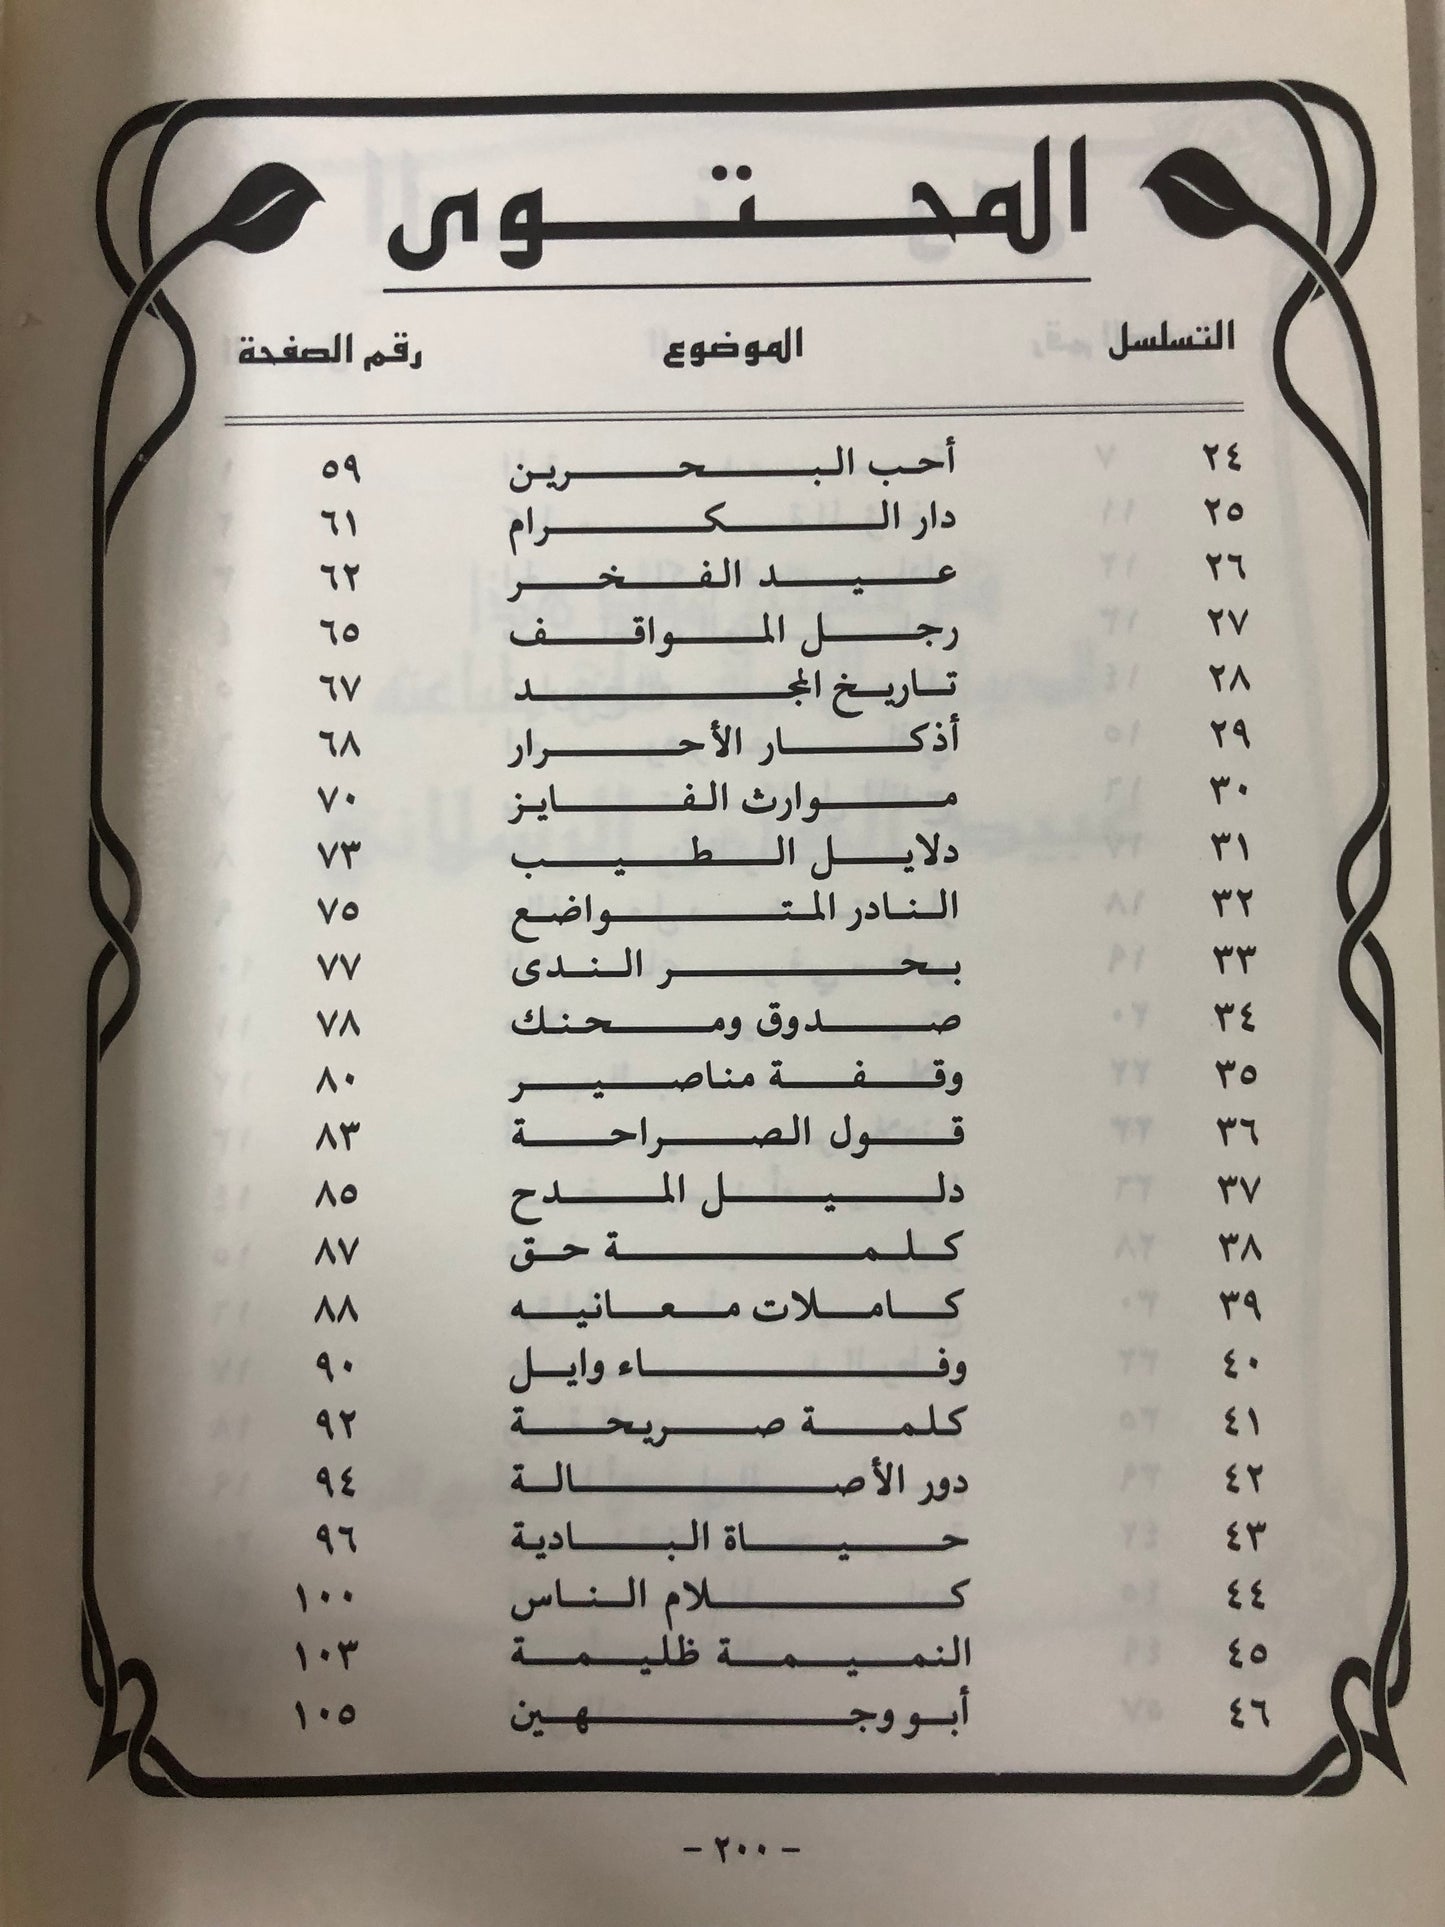 المحتوى
التسلسل الموضوع رقم الصفحة
٢٤ أحب البحرين ٥٩
٢٥ دار الكرام ٦١
٢٦ عيد الفخر ٦٢
٢٧ رجل المواقف ٦٥
٢٨ تاريخ المجد ٦٧
٢٩ أذكار الأحرار ٦٨
٣٠ موارث الفايز ٧٠
٣١ دلايل الطيب ٧٣
٣٢ النادر المتواضع ٧٥
٣٣ بحر الندى ٧٧
٣٤ صدوق ومحنك ٧٨
٣٥ وقفة مناصير ٨٠
٣٦ قول الصراحة ٨٣
٣٧ دليل المدح ٨٥
٣٨ كلمة حق ٨٧
٣٩ كاملات معانيه ٨٨
٤٠ وفاء وايل ٩٠
٤١ كلمة صريحة ٩٢
٤٢ دور الأصالة ٩٤
٤٣ حياة البادية ٩٦
٤٤ كلام الناس ١٠٠
٤٥ النميمة ظليمة ١٠٣
٤٦ أبو وجهين ١٠٥
- ٢٠٠ -